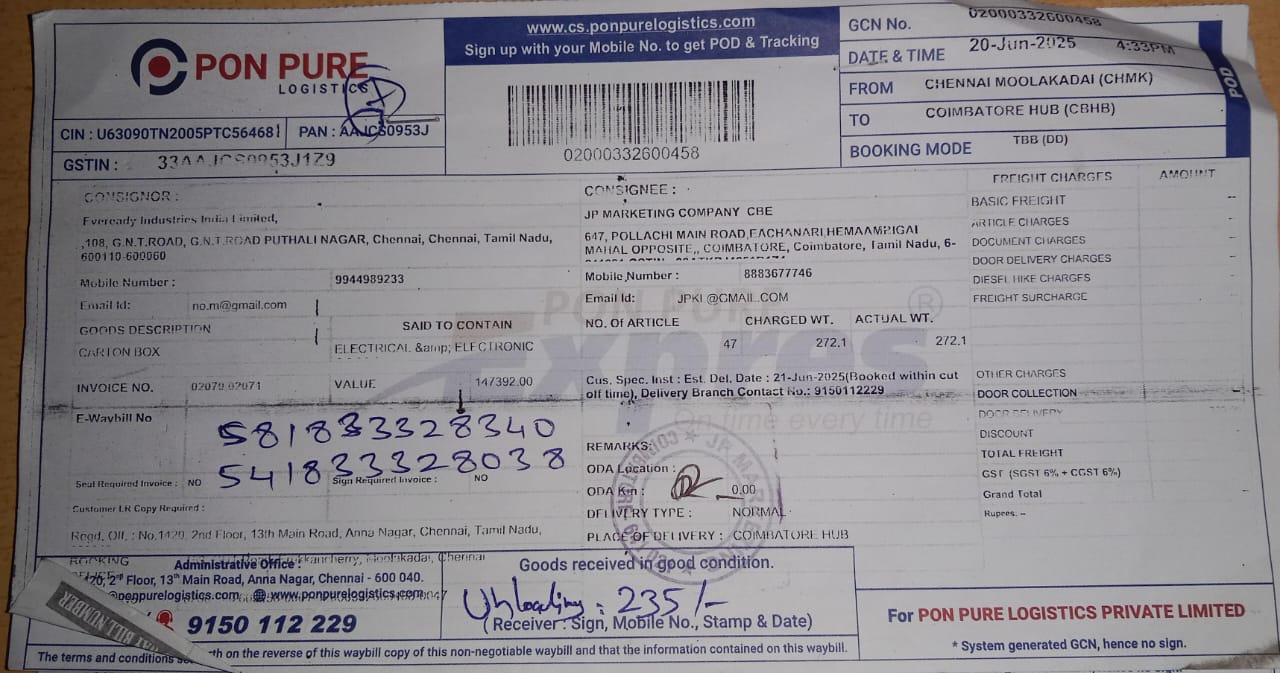 PON PURE
LOGISTICS
CIN : U63090TN2005PTC56468
PAN : AAJCS0953J
GSTIN : 33AAJCS0953J1Z9
www.cs.ponpurelogistics.com
Sign up with your Mobile No. to get POD & Tracking
02000332600458
GCN No. 02000332600458
DATE & TIME 20-Jun-2025 4:33PM
FROM CHENNAI MOOLAKADAI (CHMK)
TO COIMBATORE HUB (CBHB)
BOOKING MODE TBB (DD)
POD
CONSIGNOR :
Eveready Industries India Limited,
,108, G.N.T.ROAD, G.N.T.ROAD PUTHALI NAGAR, Chennai, Chennai, Tamil Nadu,
600110-600060
Mobile Number : 9944989233
Email Id: no.m@gmail.com
GOODS DESCRIPTION SAID TO CONTAIN
CARTON BOX ELECTRICAL &amp; ELECTRONIC
INVOICE NO. 02070 02071 VALUE 147392.00
E-Waybill No
581833328340
541833328038
Seal Required Invoice : NO Sign Required Invoice : NO
Customer LR Copy Required :
Regd. Off. : No.1420, 2nd Floor, 13th Main Road, Anna Nagar, Chennai, Tamil Nadu,
CONSIGNEE :
JP MARKETING COMPANY CBE
647, POLLACHI MAIN ROAD,EACHANARI,HEMAAMPIGAI
MAHAL OPPOSITE,, COIMBATORE, Coimbatore, Tamil Nadu, 6-
Mobile Number : 8883677746
Email Id: JPKI @GMAIL.COM
NO. Of ARTICLE CHARGED WT. ACTUAL WT.
47 272.1 272.1
Cus. Spec. Inst : Est. Del. Date : 21-Jun-2025(Booked within cut
off time), Delivery Branch Contact No.: 9150112229
PON PURE
Expres
®
On time every time
REMARKS:
ODA Location :
ODA Km : 0.00
DELIVERY TYPE : NORMAL
PLACE OF DELIVERY : COIMBATORE HUB
FREIGHT CHARGES AMOUNT
BASIC FREIGHT --
ARTICLE CHARGES
DOCUMENT CHARGES
DOOR DELIVERY CHARGES
DIESEL HIKE CHARGES
FREIGHT SURCHARGE
OTHER CHARGES
DOOR COLLECTION
DOOR DELIVERY
DISCOUNT
TOTAL FREIGHT
GST (SGST 6% + CGST 6%)
Grand Total
Rupees: --
BOOKING Moolakadai, Chennai
Administrative Office :
2nd Floor, 13th Main Road, Anna Nagar, Chennai - 600 040.
@ponpurelogistics.com www.ponpurelogistics.com
9150 112 229
BILL NUMBER
Goods received in good condition.
Unloading : 235/-
(Receiver : Sign, Mobile No., Stamp & Date)
For PON PURE LOGISTICS PRIVATE LIMITED
* System generated GCN, hence no sign.
The terms and conditions on the reverse of this waybill copy of this non-negotiable waybill and that the information contained on this waybill.